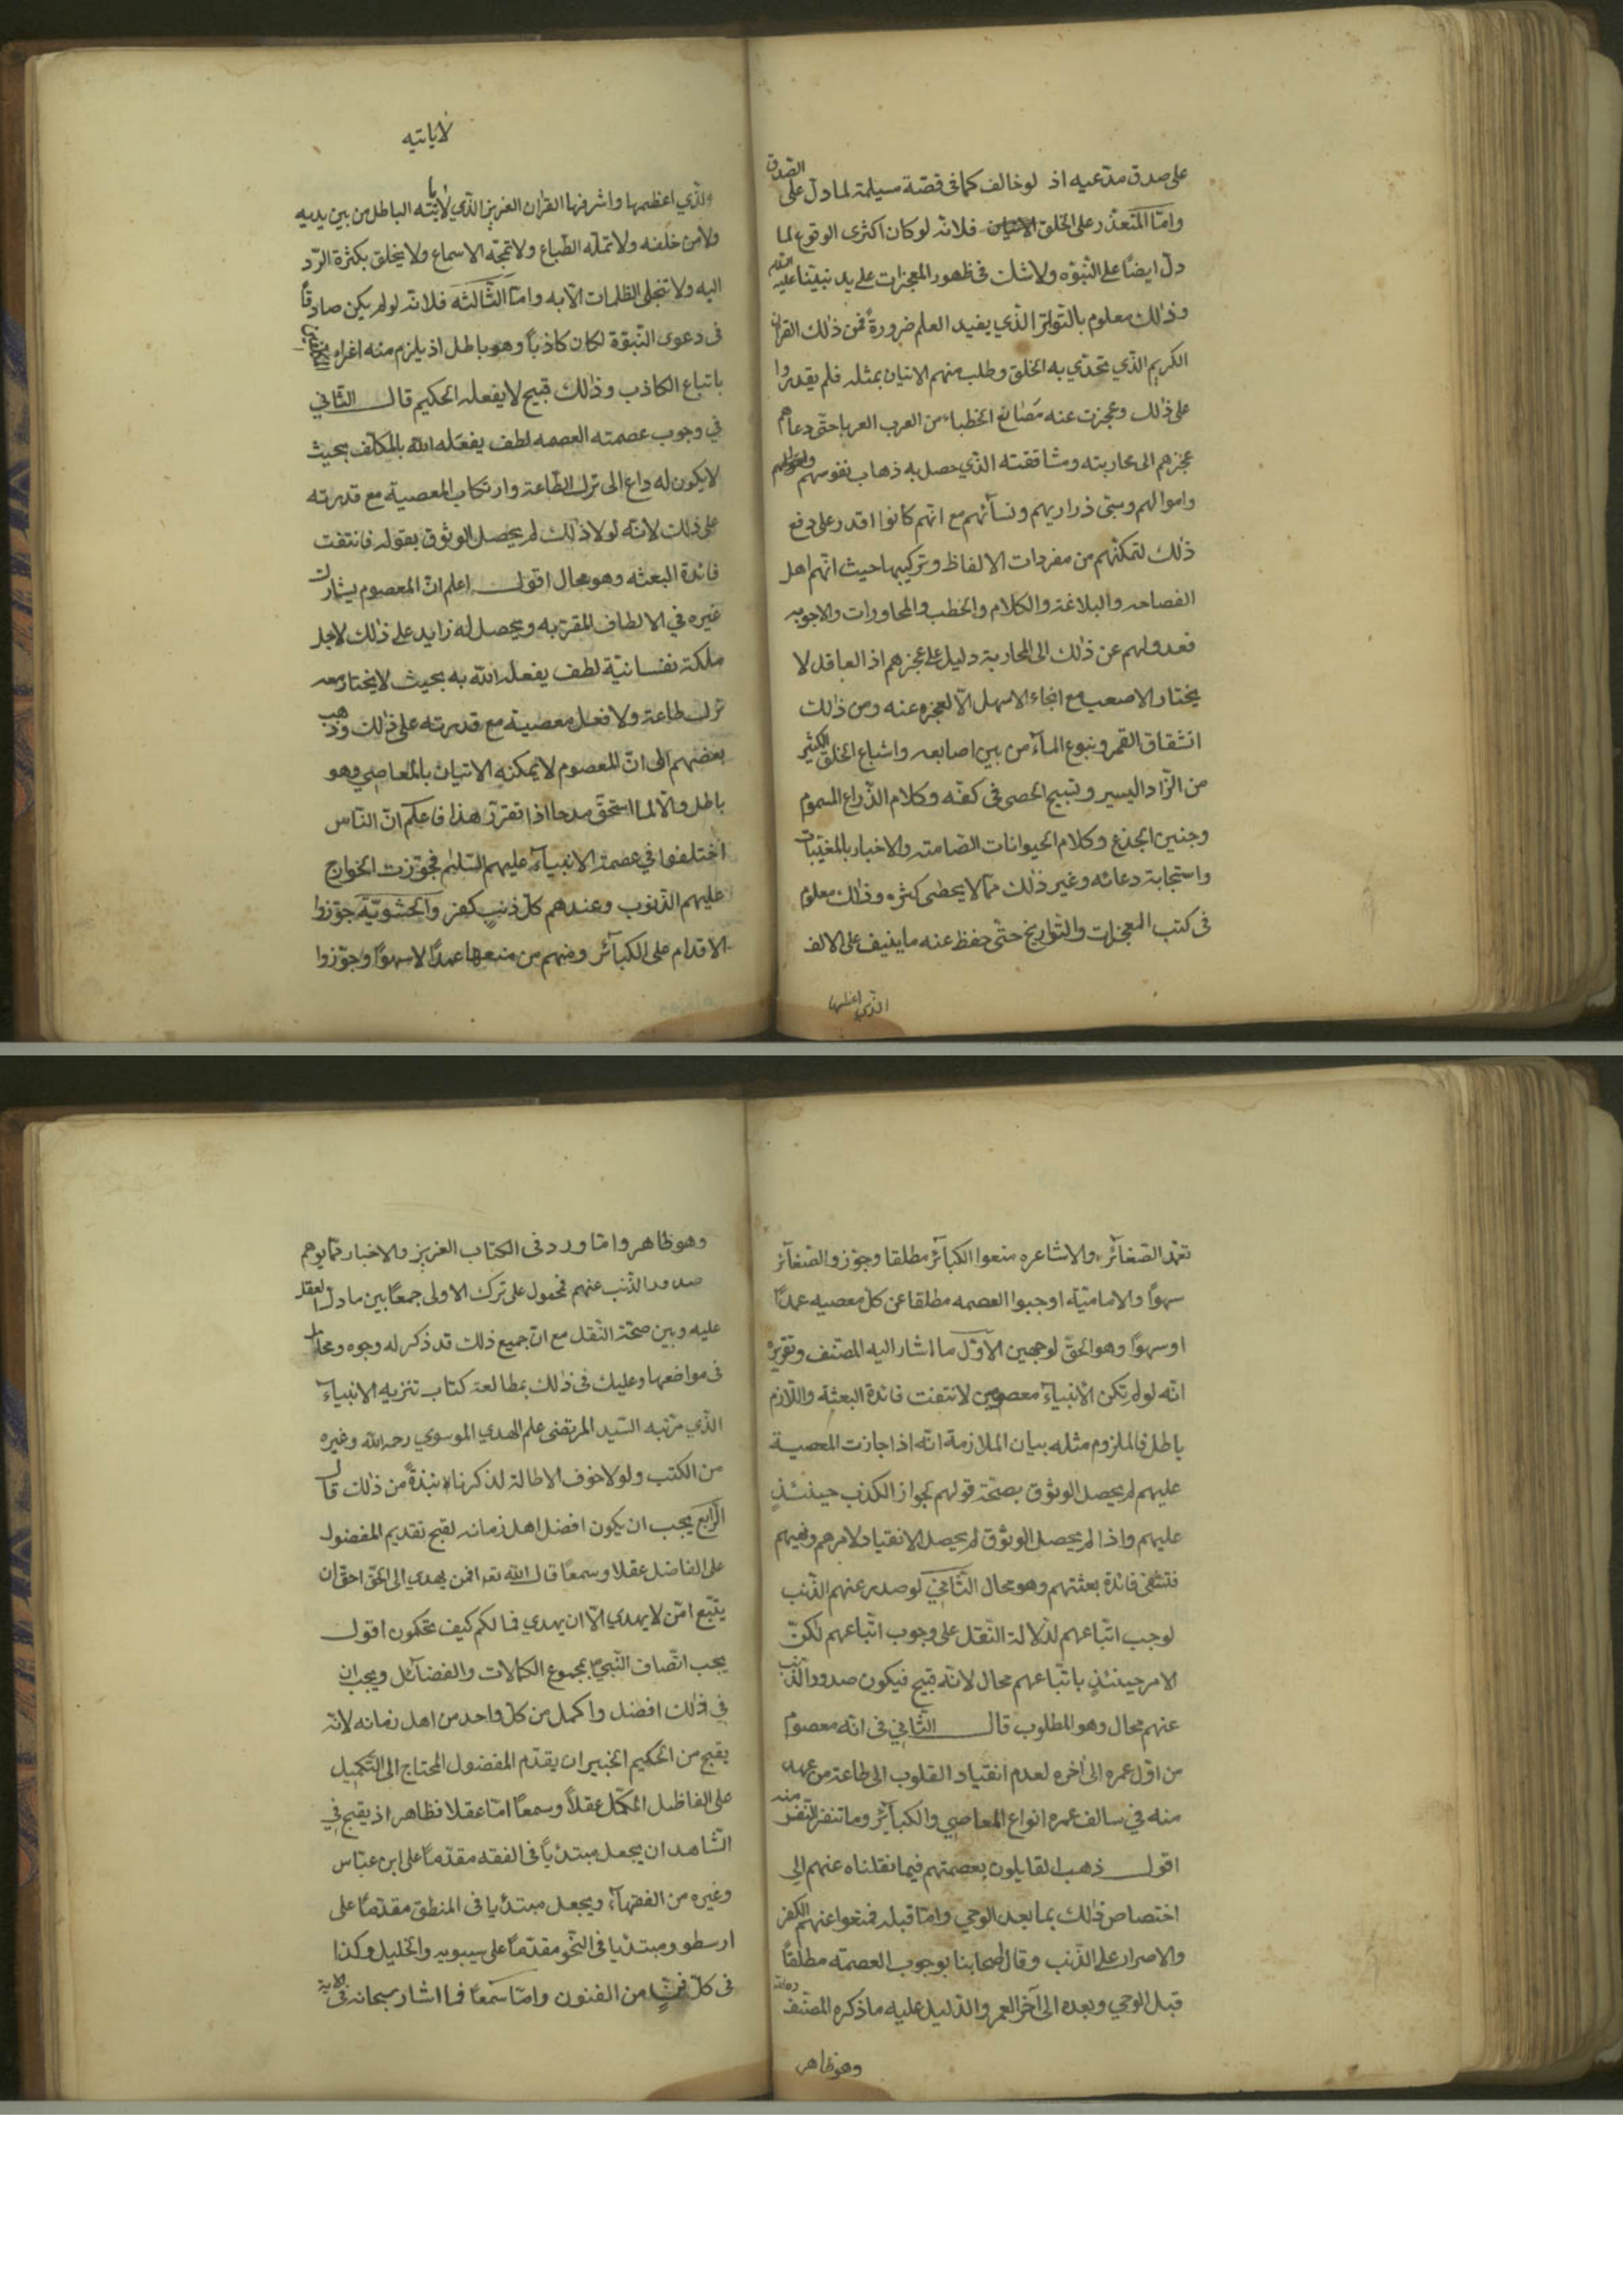 على صدق مدّعيه اذ لو خالف كما فى قصّة مسيلمة لما دلّ على الصّدق
وامّا المتعذّر على الخلق فلانّه لو كان اكثرى الوقوع لما
دلّ ايضًا على النّبوّه ولا شك فى ظهور المعجزات على يد نبيّنا عليه السّلم
وذلك معلوم بالتّواتر الّذي يفيد العلم ضرورةً فمن ذلك القران
الكريم الّذي تحدّي به الخلق وطلب منهم الاتيان بمثله فلم يقدروا
على ذلك وعجزت عنه مصاقع الخطباء من العرب العربا حتّى دعاهم
عجزهم الى محاربته ومشاققته الّذي حصل به ذهاب نفوسهم
واموالهم وسبى ذراريهم ونسآئهم مع انّهم كانوا اقدر على دفع
ذلك لتمكنّهم من مفردات الالفاظ وتركيبها حيث انّهم اهل
الفصاحه والبلاغة والكلام والخطب والمحاورات والاجوبه
فعدولهم عن ذلك الى المحاربة دليل على عجزهم اذ العاقل لا
يختار الاصعب مع انجاء الاسهل الّا لعجزه عنه ومن ذلك
انشقاق القمر وينبوع المآء من بين اصابعه واشباع الخلق الكثير
من الزّاد اليسير وتسبيح الحصى فى كفّه وكلام الذّراع المسموم
وحنين الجذع وكلام الحيوانات الصّامته والاخبار بالمغيّبات
واستجابة دعائه وغير ذلك ممّا لا يحصى كثره وذلك معلوم
فى كتب المعجزات والتّواريخ حتّى حفظ عنه ما ينيف على الالف
الّذي اعظمها
لا ياتيه
والّذي اعظمها واشرفها القران العزيز الّذي لا يأتيه الباطل من بين يديه
ولا من خلفه ولا تملّه الطّباع ولا تمجّه الاسماع ولا يخلق بكثرة الرّد
اليه ولا تنجلى الظلمات الّا به وامّا الثّالثه فلانّه لو لم يكن صادقًا
فى دعوى النّبوّة لكان كاذبًا وهو باطل اذ يلزم منه اغراء المكلّفين
باتباع الكاذب وذلك قبيح لا يفعله الحكيم قال الثّاني
في وجوب عصمته العصمه لطف يفعله الله بالمكلّف بحيث
لا يكون له داع الى ترك الطّاعة وارتكاب المعصية مع قدرته
على ذلك لانّه لولا ذلك لم يحصل الوثوق بقوله فانتفت
فائدة البعثه وهو محال اقول اعلم انّ المعصوم يشارك
غيره في الالطاف المقرّبه ويحصل له زايد على ذلك لاجل
ملكة نفسانيّة لطف يفعله الله به بحيث لا يختار معه
ترك طاعة ولا فعل معصية مع قدرته على ذلك وذهب
بعضهم الى انّ المعصوم لا يمكنه الاتيان بالمعاصي وهو
باطل والّا لما استحقّ مدحا اذا تقرّر هذا فاعلم انّ النّاس
اختلفوا في عصمة الانبيآء عليهم السّلام فجوّزت الخوارج
عليهم الذّنوب وعندهم كلّ ذنب كفر والحشويّة جوّزوا
الاقدام على الكبآئر ومنهم من منعها عمدًا لا سهوًا وجوّزوا
تعمّد الصّغآئر والاشاعره منعوا الكبآئر مطلقا وجوّزو الصّغآئر
سهوًا والاماميّة اوجبوا العصمه مطلقا عن كلّ معصيه عمدًا
او سهوًا وهو الحقّ لوجهين الاوّل ما اشار اليه المصنّف وتقريره
انّه لو لم تكن الانبيآء معصومين لانتفت فائدة البعثه واللّازم
باطل فالملزوم مثله بيان الملازمة انّه اذا جازت المعصية
عليهم لم يحصل الوثوق بصحّة قولهم لجواز الكذب حينئذٍ
عليهم واذا لم يحصل الوثوق لم يحصل الانقياد لامرهم ونهيهم
فتنتفى فائدة بعثتهم وهو محال الثّاني لو صدر عنهم الذّنب
لوجب اتّباعهم لدلالة النّقل على وجوب اتّباعهم لكنّ
الامر حينئذٍ باتّباعهم محال لانّه قبيح فيكون صدور الذّنب
عنهم محال وهو المطلوب قال الثّاني فى انّه معصوم
من اوّل عمره الى اخره لعدم انقياد القلوب الى طاعة من عهد
منه في سالف عمره انواع المعاصي والكبآئر وما تنفر النّفس منه
اقول ذهب القايلون بعصمتهم فيما نقلناه عنهم الى
اختصاص ذلك بما بعد الوحي وامّا قبله فمنعوا عنهم الكفر
والاصرار على الذّنب وقال اصحابنا بوجوب العصمة مطلقًا
قبل الوحي وبعده الى آخر العمر والدّليل عليه ما ذكره المصنّف
وهو ظاهر
وهو ظاهر وامّا ورد فى الكتاب العزيز والاخبار ممّا يوهم
صدور الذّنب عنهم فمحمول على ترك الاولى جمعًا بين ما دلّ العقل
عليه وبين صحّة النّقل مع انّ جميع ذلك قد ذكر له وجوه ومحامل
فى مواضعها وعليك فى ذلك بمطالعة كتاب تنزيه الانبيآء
الّذي رتّبه السّيد المرتضى علم الهدي الموسوي رحمه الله وغيره
من الكتب ولولا خوف الاطالة لذكرنا نبذةً من ذلك قال
الرّابع يجب ان يكون افضل اهل زمانه لقبح تقديم المفضول
على الفاضل عقلا وسمعًا قال الله تع افمن يهدي الى الحقّ احقّ ان
يتّبع امّن لا يهدي الّا ان يهدي فما لكم كيف تحكمون اقول
يجب اتّصاف النّبي بمجموع الكمالات والفضآئل ويجب ان
في ذلك افضل واكمل من كلّ واحد من اهل زمانه لانّه
يقبح من الحكيم الخبير ان يقدّم المفضول المحتاج الى التّكميل
على الفاضل المكمّل عقلًا وسمعًا امّا عقلا فظاهر اذ يقبح في
الشّاهد ان يجعل مبتدئاً فى الفقه مقدّمًا على ابن عبّاس
وغيره من الفقهآء ويجعل مبتدئيا فى المنطق مقدّمًا على
ارسطو ومبتدئيا فى النّحو مقدّمًا على سيبويه والخليل وكذا
فى كلّ فنّ من الفنون وامّا سمعًا فما اشار سبحانه فى الاية